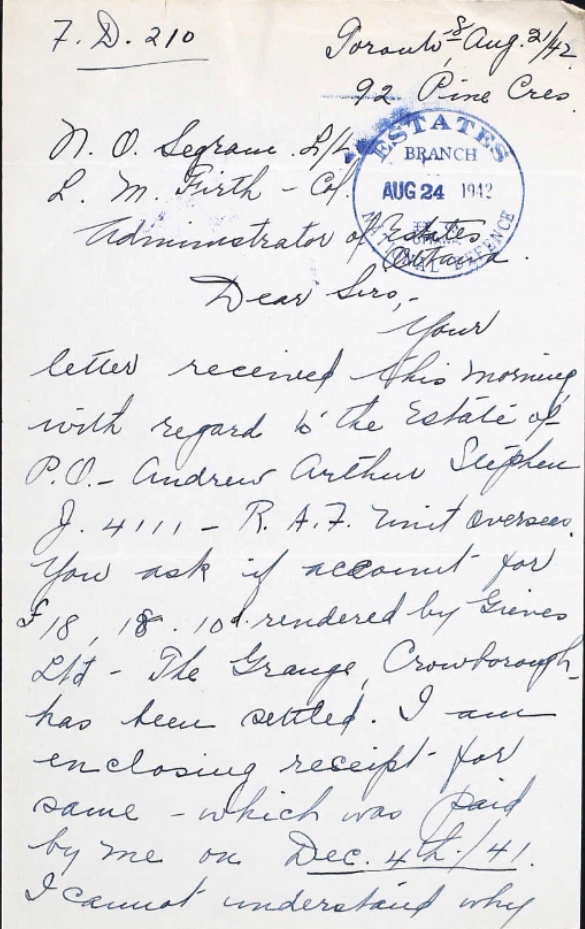 F. D. 210
Toronto 8, Aug. 21/42
92 Pine Cres.
N. O. Segram L/L
L. M. Firth - Col.
Administrator of Estates
Ottawa.
ESTATES
BRANCH
AUG 24 1942
OTTAWA
NATIONAL DEFENCE
Dear Sirs,-
Your
letter received this morning
with regard to the Estate of
P.O. - Andrew Arthur Stephen
J. 4111 - R.A.F. Unit Overseas.
You ask if account for
£18, 18. 10d. rendered by Gieves
Ltd - The Grange, Crowborough
has been settled. I am
enclosing receipt for
same - which was paid
by me on Dec. 4th./41.
I cannot understand why